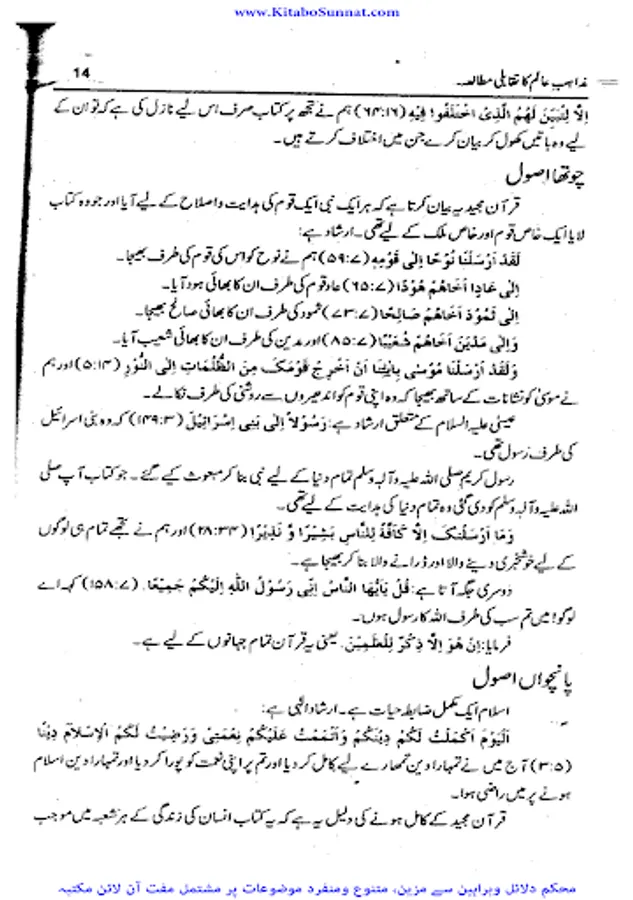 www.KitaboSunnat.com
مذاہب عالم کا تقابلی مطالعہ۔ 14
اِلَّا لِتُبَيِّنَ لَهُمُ الَّذِى اخْتَلَفُوا فِيْهِ (۶۴:۱۶) ہم نے تجھ پر کتاب صرف اس لیے نازل کی ہے کہ تو ان کے
لیے وہ باتیں کھول کر بیان کرے جن میں اختلاف کرتے ہیں۔
چوتھا اصول
قرآن مجید یہ بیان کرتا ہے کہ ہر ایک نبی ایک قوم کی ہدایت و اصلاح کے لیے آیا اور جو وہ کتاب
لایا ایک خاص قوم اور خاص ملک کے لیے تھی۔ ارشاد ہے:
لَقَدْ اَرْسَلْنَا نُوْحًا اِلٰى قَوْمِهٖ (۵۹:۷) ہم نے نوح کو اس کی قوم کی طرف بھیجا۔
اِلٰى عَادٍ اَخَاهُمْ هُوْدًا (۶۵:۷) عاد قوم کی طرف ان کا بھائی ہود آیا۔
اِلٰى ثَمُوْدَ اَخَاهُمْ صَالِحًا (۷۳:۷) ثمود کی طرف ان کا بھائی صالح بھیجا۔
وَاِلٰى مَدْيَنَ اَخَاهُمْ شُعَيْبًا (۸۵:۷) اور مدین کی طرف ان کا بھائی شعیب آیا۔
وَلَقَدْ اَرْسَلْنَا مُوْسٰى بِاٰيٰتِنَا اَنْ اَخْرِجْ قَوْمَكَ مِنَ الظُّلُمَاتِ اِلَى النُّوْرِ (۵:۱۴) اور ہم
نے موسیٰ کو نشانات کے ساتھ بھیجا کہ وہ اپنی قوم کو اندھیروں سے روشنی کی طرف نکالے۔
عیسیٰ علیہ السلام کے متعلق ارشاد ہے: رَسُوْلًا اِلٰى بَنِى اِسْرَائِيْلَ (۱۴۹:۳) کہ وہ بنی اسرائیل
کی طرف رسول تھی۔
رسول کریم صلی اللہ علیہ وآلہ وسلم تمام دنیا کے لیے نبی بنا کر مبعوث کیے گئے۔ جو کتاب آپ صلی
اللہ علیہ وآلہ وسلم کو دی گئی وہ تمام دنیا کی ہدایت کے لیے تھی۔
وَمَا اَرْسَلْنٰكَ اِلَّا كَافَّةً لِّلنَّاسِ بَشِيْرًا وَّ نَذِيْرًا (۲۸:۳۴) اور ہم نے تجھے تمام ہی لوگوں
کے لیے خوشخبری دینے والا اور ڈرانے والا بنا کر بھیجا ہے۔
دوسری جگہ آتا ہے: قُلْ يٰاَيُّهَا النَّاسُ اِنِّى رَسُوْلُ اللّٰهِ اِلَيْكُمْ جَمِيْعًا۔ (۱۵۸:۷) کہہ اے
لوگو! میں تم سب کی طرف اللہ کا رسول ہوں۔
فرمایا: اِنْ هُوَ اِلَّا ذِكْرٌ لِّلْعٰلَمِيْنَ۔ یعنی یہ قرآن تمام جہانوں کے لیے ہے۔
پانچواں اصول
اسلام ایک مکمل ضابطہ حیات ہے۔ ارشاد الٰہی ہے:
اَلْيَوْمَ اَكْمَلْتُ لَكُمْ دِيْنَكُمْ وَاَتْمَمْتُ عَلَيْكُمْ نِعْمَتِىْ وَرَضِيْتُ لَكُمُ الْاِسْلَامَ دِيْنًا
(۳:۵) آج میں نے تمہارا دین تمہارے لیے کامل کر دیا اور تم پر اپنی نعمت کو پورا کر دیا اور تمہارا دین اسلام
ہونے پر میں راضی ہوا۔
قرآن مجید کے کامل ہونے کی دلیل یہ ہے کہ یہ کتاب انسان کی زندگی کے ہر شعبہ میں موجب
محکم دلائل وبراہین سے مزین، متنوع ومنفرد موضوعات پر مشتمل مفت آن لائن مکتبہ